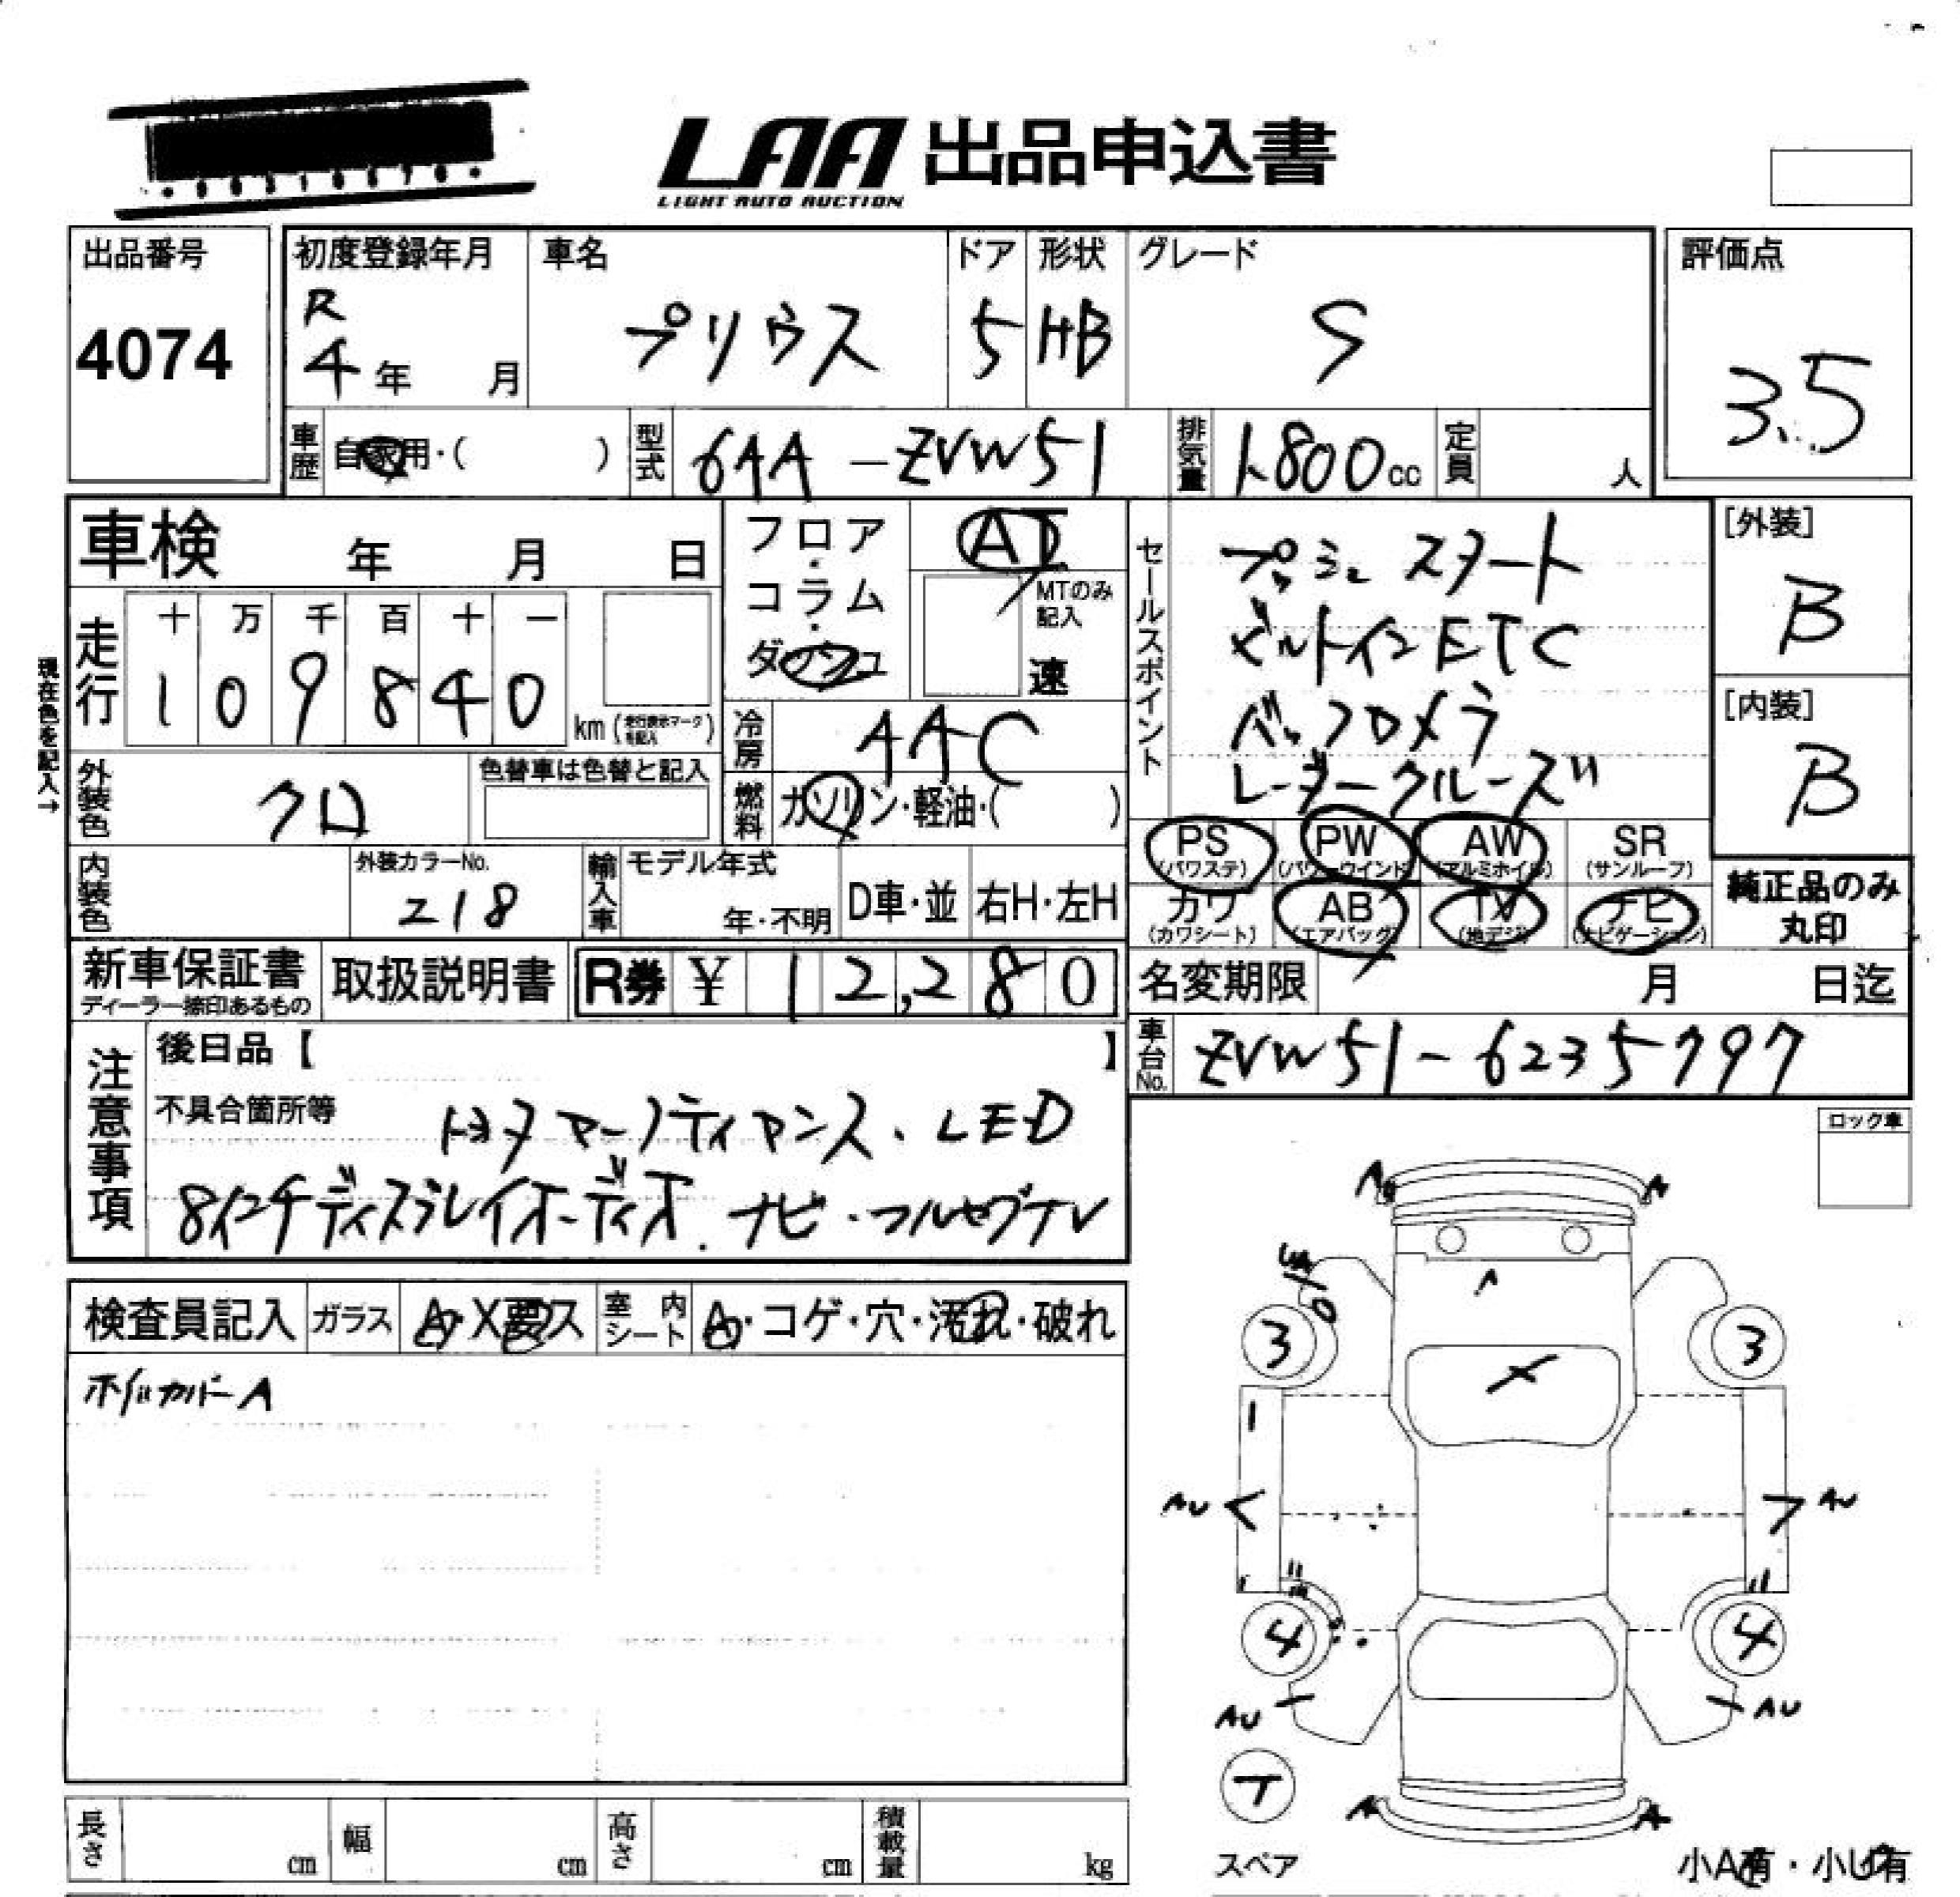 LAA 出品申込書
LIGHT AUTO AUCTION
出品番号
4074
初度登録年月
R
4年 月
車名
プリウス
ドア
5
形状
HB
グレード
S
評価点
3.5
車歴
自家用・( )
型式
6AA-ZVW51
排気量
1,800cc
定員
人
車検 年 月 日
現在色を記入→
走行
十 万 千 百 十 一
1 0 9 8 4 0
km (走行表示マークを記入)
外装色
クロ
色替車は色替と記入
内装色
外装カラーNo.
218
輸入車
モデル年式
年・不明
D車・並
右H・左H
フロア・コラム・ダッシュ
AT
MTのみ記入
速
冷房
AAC
燃料
ガソリン・軽油・( )
セールスポイント
プッシュスタート
ビルトインETC
バックカメラ
レーダークルーズ
[外装]
B
[内装]
B
PS (パワステ)
PW (パワーウインド)
AW (アルミホイル)
SR (サンルーフ)
カワ (カワシート)
AB (エアバッグ)
TV (地デジ)
ナビ (ナビゲーション)
純正品のみ丸印
新車保証書
ディーラー捺印あるもの
取扱説明書
R券 ¥ 12,280
名変期限 月 日迄
車台No.
ZVW51-6235797
注意事項
後日品【 】
不具合箇所等
トヨタマークノティアンス、LED
8インチディスプレイオーディオ.ナビ・フルセグTV
ロック車
検査員記入
ガラス
A・X要ス
室内シート
A・コゲ・穴・汚れ・破れ
ホイルカバーA
A
A
A
3
3
X
AU
AU
4
4
AU
AU
T
スペア
A
A
小A有・小U有
長さ cm
幅 cm
高さ cm
積載量 kg